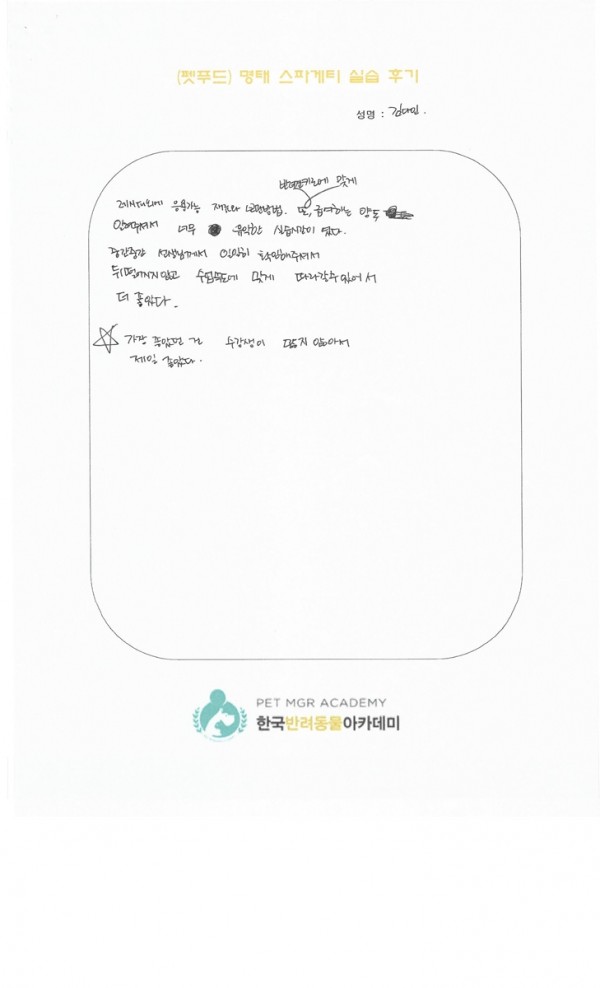 (펫푸드) 명태 스파게티 실습 후기
성명 : 김다인.
반려견키로에 맞게
레시피외에 응용가능 재료와 보관방법. 또, 급여하는 양도
알려주셔서 너무 유익한 실습시간이 였다.
중간중간 선생님께서 일일히 확인해주셔서
뒤떨어지지않고 수업속도에 맞게 따라갈수있어서
더 좋았다.
가장 좋았던 건 수강생이 많지 않아서
제일 좋았다.
PET MGR ACADEMY
한국반려동물아카데미